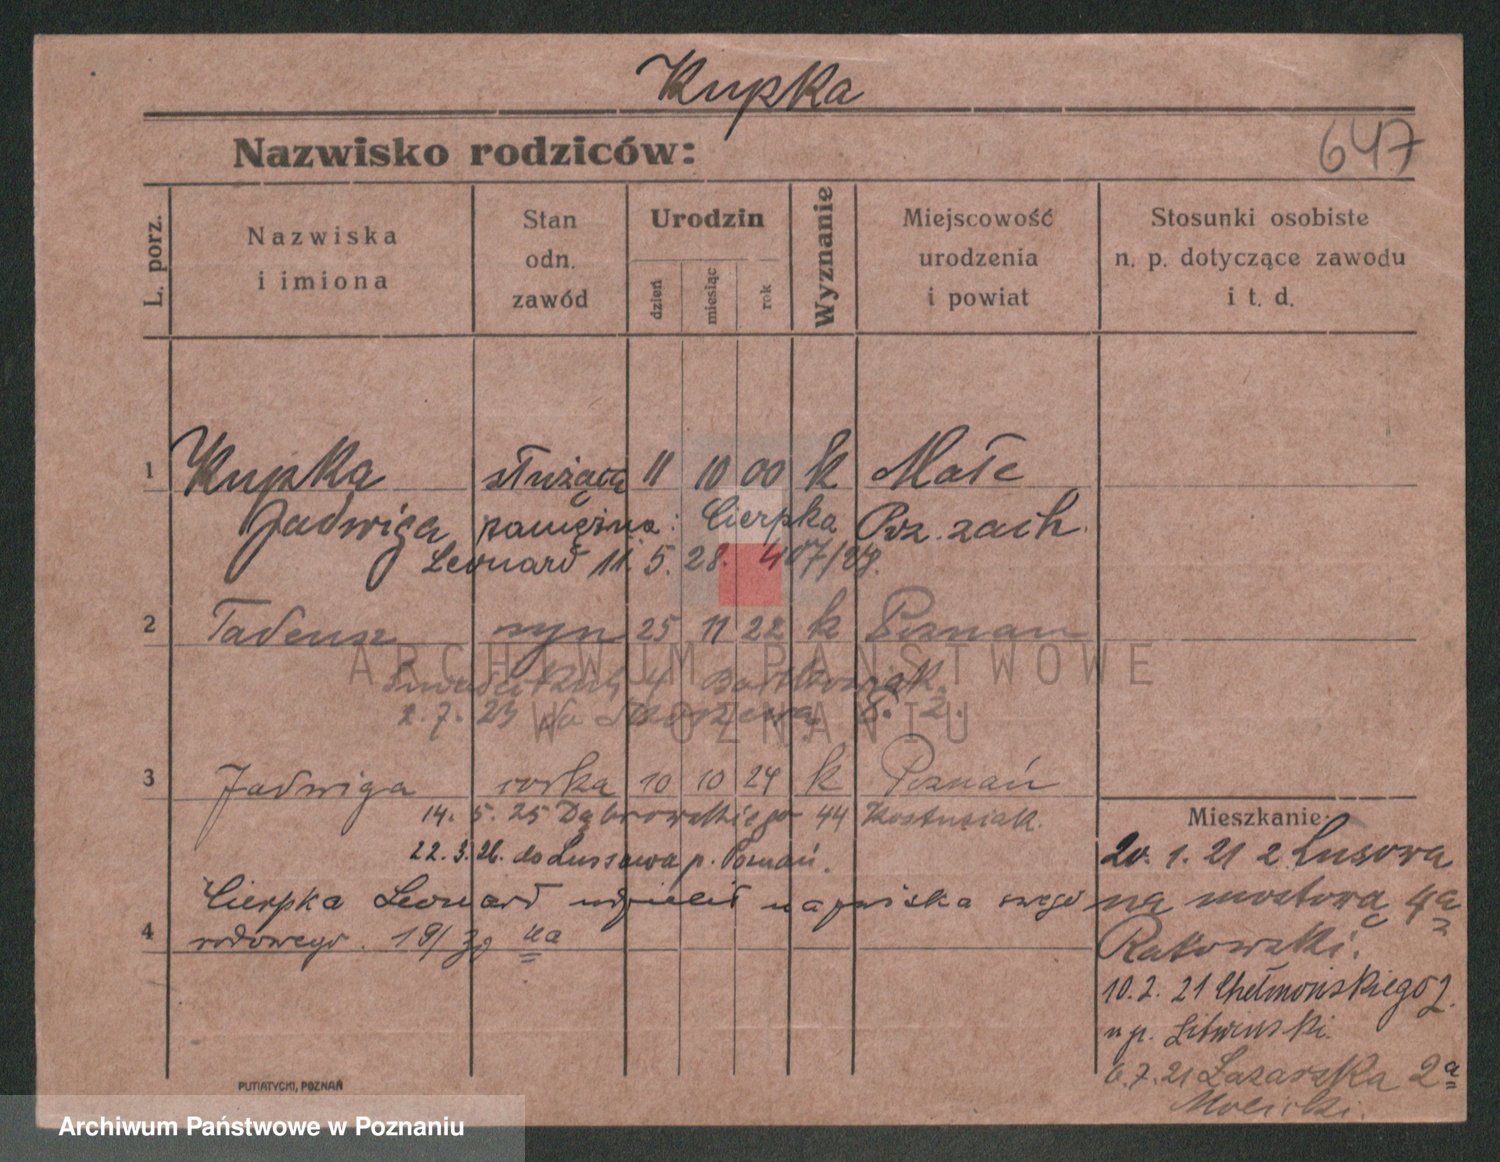 Kupka
Nazwisko rodziców:
647
L. porz.
Nazwiska
i imiona
Stan
odn.
zawód
Urodzin
dzień
miesiąc
rok
Wyznanie
Miejscowość
urodzenia
i powiat
Stosunki osobiste
n. p. dotyczące zawodu
i t. d.
1 Kupka służąca 11 10 00 k Małe
Jadwiga zamężna: Cierpka Poz. zach.
Leonard 11. 5. 28. 407/28.
2 Tadeusz syn 25 11 22 k Poznań
4
2. 7. 23 do 8. 2.
3 Jadwiga córka 10 10 24 k Poznań
14. 5. 25 Dąbrowskiego 44 Kostusiak.
22. 3. 26. do Lussowa p. Poznań.
Cierpka Leonard udzielił nazwiska swego
4 rodowego. 19/
Mieszkanie:
20. 1. 21 z Lusowa
na mostowa 4a
Ratowski.
10. 2. 21 Chełmońskiego 7.
u p. Litwinski.
6. 7. 21 Lazarska 2a
PUTIATYCKI, POZNAŃ
ARCHIWUM PAŃSTWOWE
W POZNANIU
Archiwum Państwowe w Poznaniu